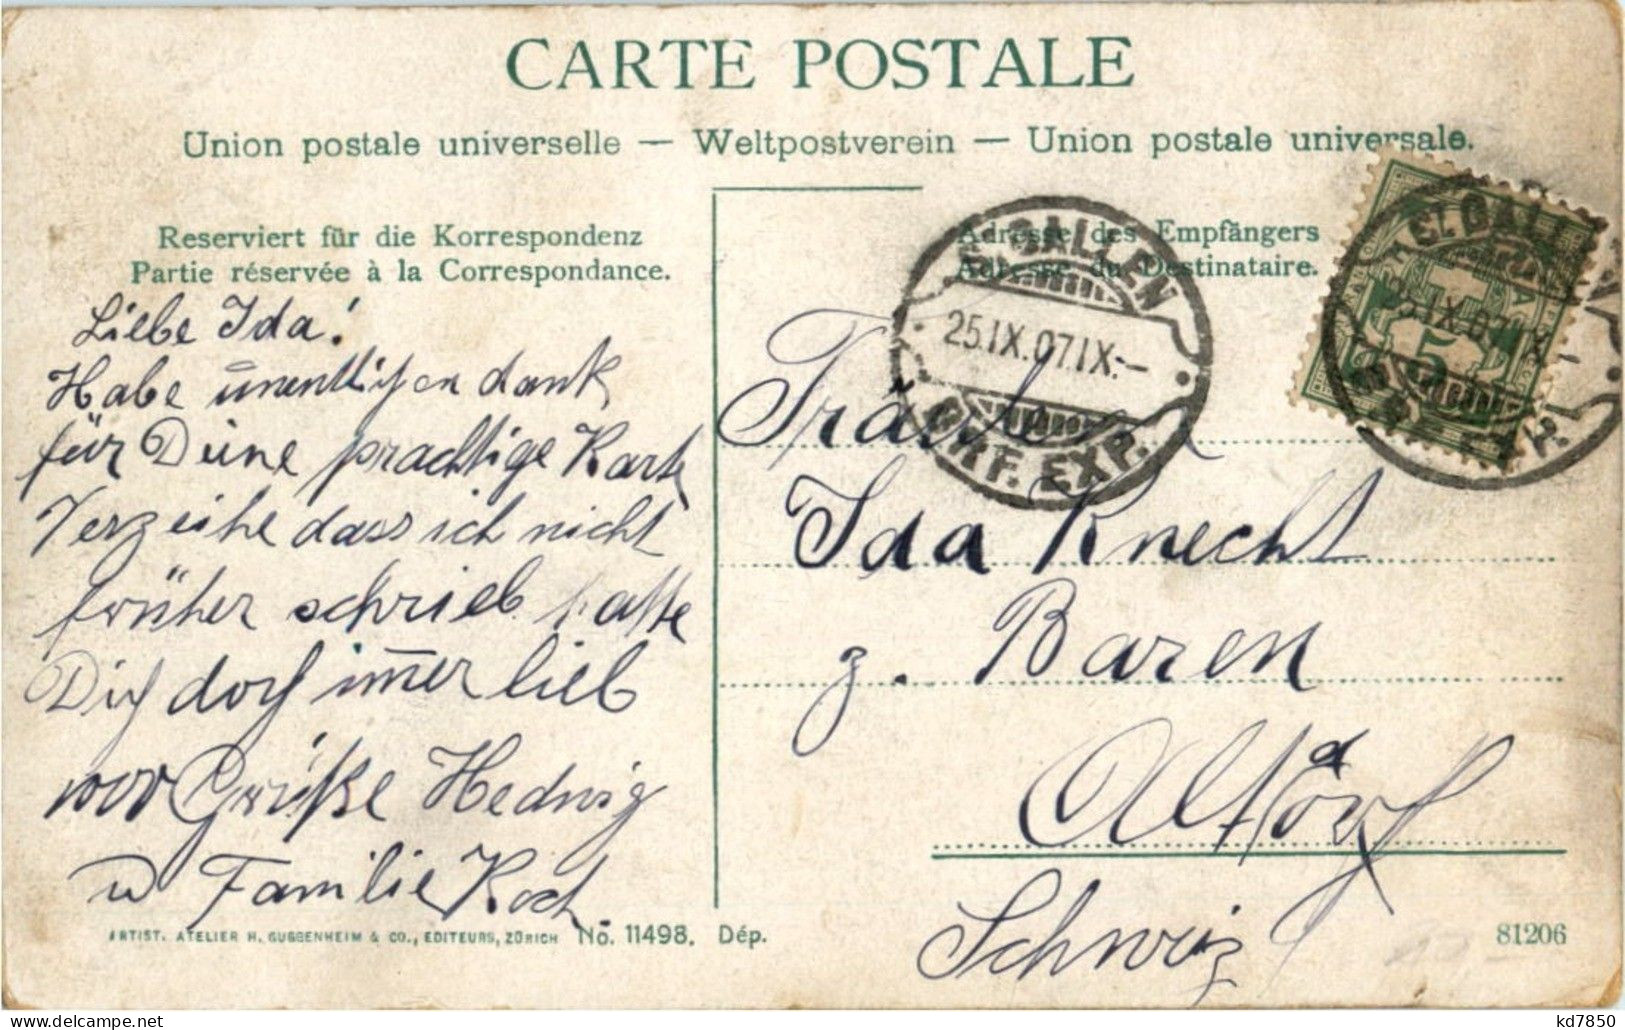 CARTE POSTALE
Union postale universelle — Weltpostverein — Union postale universale.
Reserviert für die Korrespondenz
Partie réservée à la Correspondance.
Adresse des Empfängers
Adresse du Destinataire.
ST. GALLEN
25.IX.07.IX.–
BRF. EXP.
ST. GALLEN
25.IX.07.IX.–
5
Liebe Ida!
Habe unendlichen dank
für Deine prachtige Karte
Verzeihe dass ich nicht
früher schrieb hatte
Dich doch immer lieb
1000 Grüße Hedwig
u Familie Koch
Fräulein
Ida Knecht
z. Baren
Altdorf
Schweiz
ARTIST. ATELIER H. GUGGENHEIM & CO., EDITEURS, ZÜRICH No. 11498. Dép.
81206
kd7850